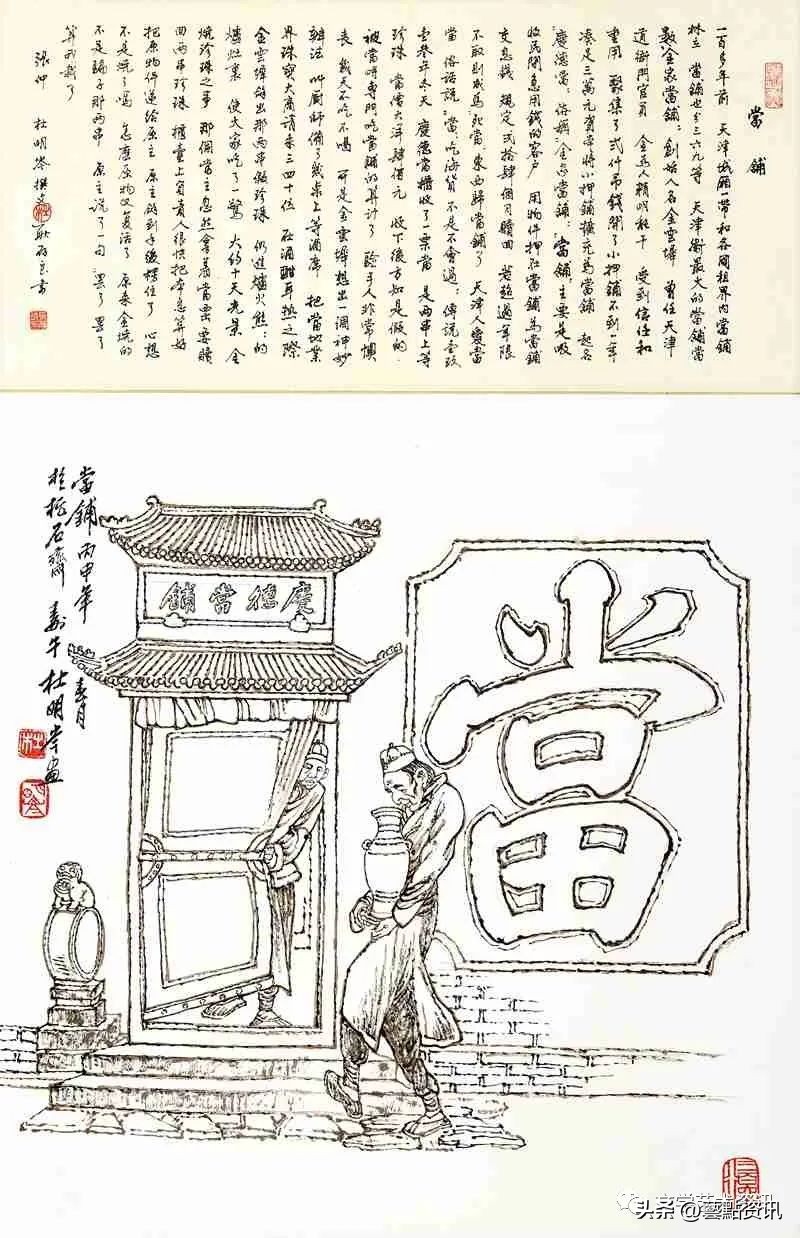 當鋪
一百多年前 天津城廂一帶和各國租界內當鋪
林立 當鋪也分三六九等 天津衛最大的當鋪當
數“金家當鋪”創始人名金雲墀 曾任天津
道衙門官員 金為人精明能干 受到信任和
重用 聚集了弍什吊錢開了小押鋪不到一年
湊足三萬元資本將小押鋪擴充為當鋪 起名
“慶德當”俗稱“金家當鋪”“當鋪”主要是吸
收民間急用錢的客戶 用物件押在當鋪為當鋪
交息錢 規定弍拾肆個月贖回 若超過年限
不取則成為“死當”東西歸當鋪了 天津人愛當
當 俗話說“當吃海貨 不是不會過”傳說壹玖
壹叁年冬天 慶德當櫃收了一票當 是兩串上等
珍珠 當價大洋肆佰元 收下後方知是假的
被當時專門吃當鋪的算計了 驗手人非常懊
喪 幾天不吃不喝 可是金雲墀想出一個神妙
辦法 叫廚師備了幾桌上等酒席 把當地業
界珠寶大商請來三四十位 在酒酣耳熱之際
金雲墀拿出那兩串假珍珠 仍進爐火熊熊的
爐灶裏 使大家吃了一驚 大約十天光景 金
燒珍珠之事 那個當主忽然拿着當票要贖
回兩串珍珠 櫃臺上負責人很快把本息算好
把原物件遞給原主 原主接到手後楞住了 心想
不是燒了嗎 怎麼原物又復活了 原來金燒的
不是騙子那兩串 原主說了一句“罷了 罷了
算我栽了
張仲 杜明岑撰文 書
當鋪 丙申年春月
於拴石齋 壽牛杜明岑畫
慶德當鋪
當
头条 @藝點资讯